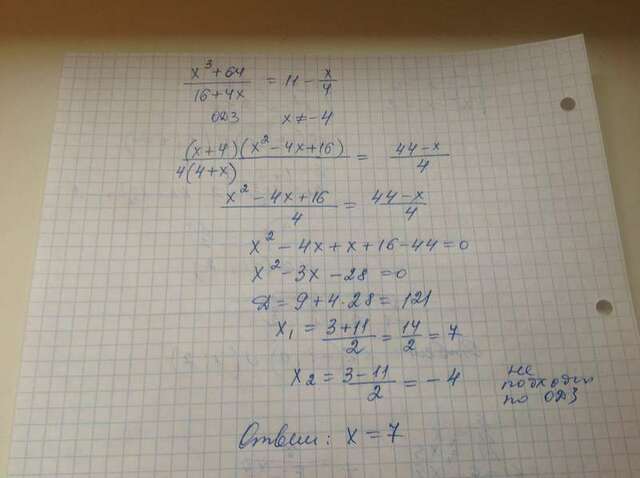 x³+64 / 16+4x = 11 - x/4
ОДЗ x ≠ -4
(x+4)(x²-4x+16) / 4(4+x) = 44-x / 4
x²-4x+16 / 4 = 44-x / 4
x²-4x+x+16-44=0
x²-3x-28=0
Д=9+4·28=121
x₁ = 3+11 / 2 = 14 / 2 = 7
x₂ = 3-11 / 2 = -4
не
подходит
по ОДЗ
Ответ: x=7